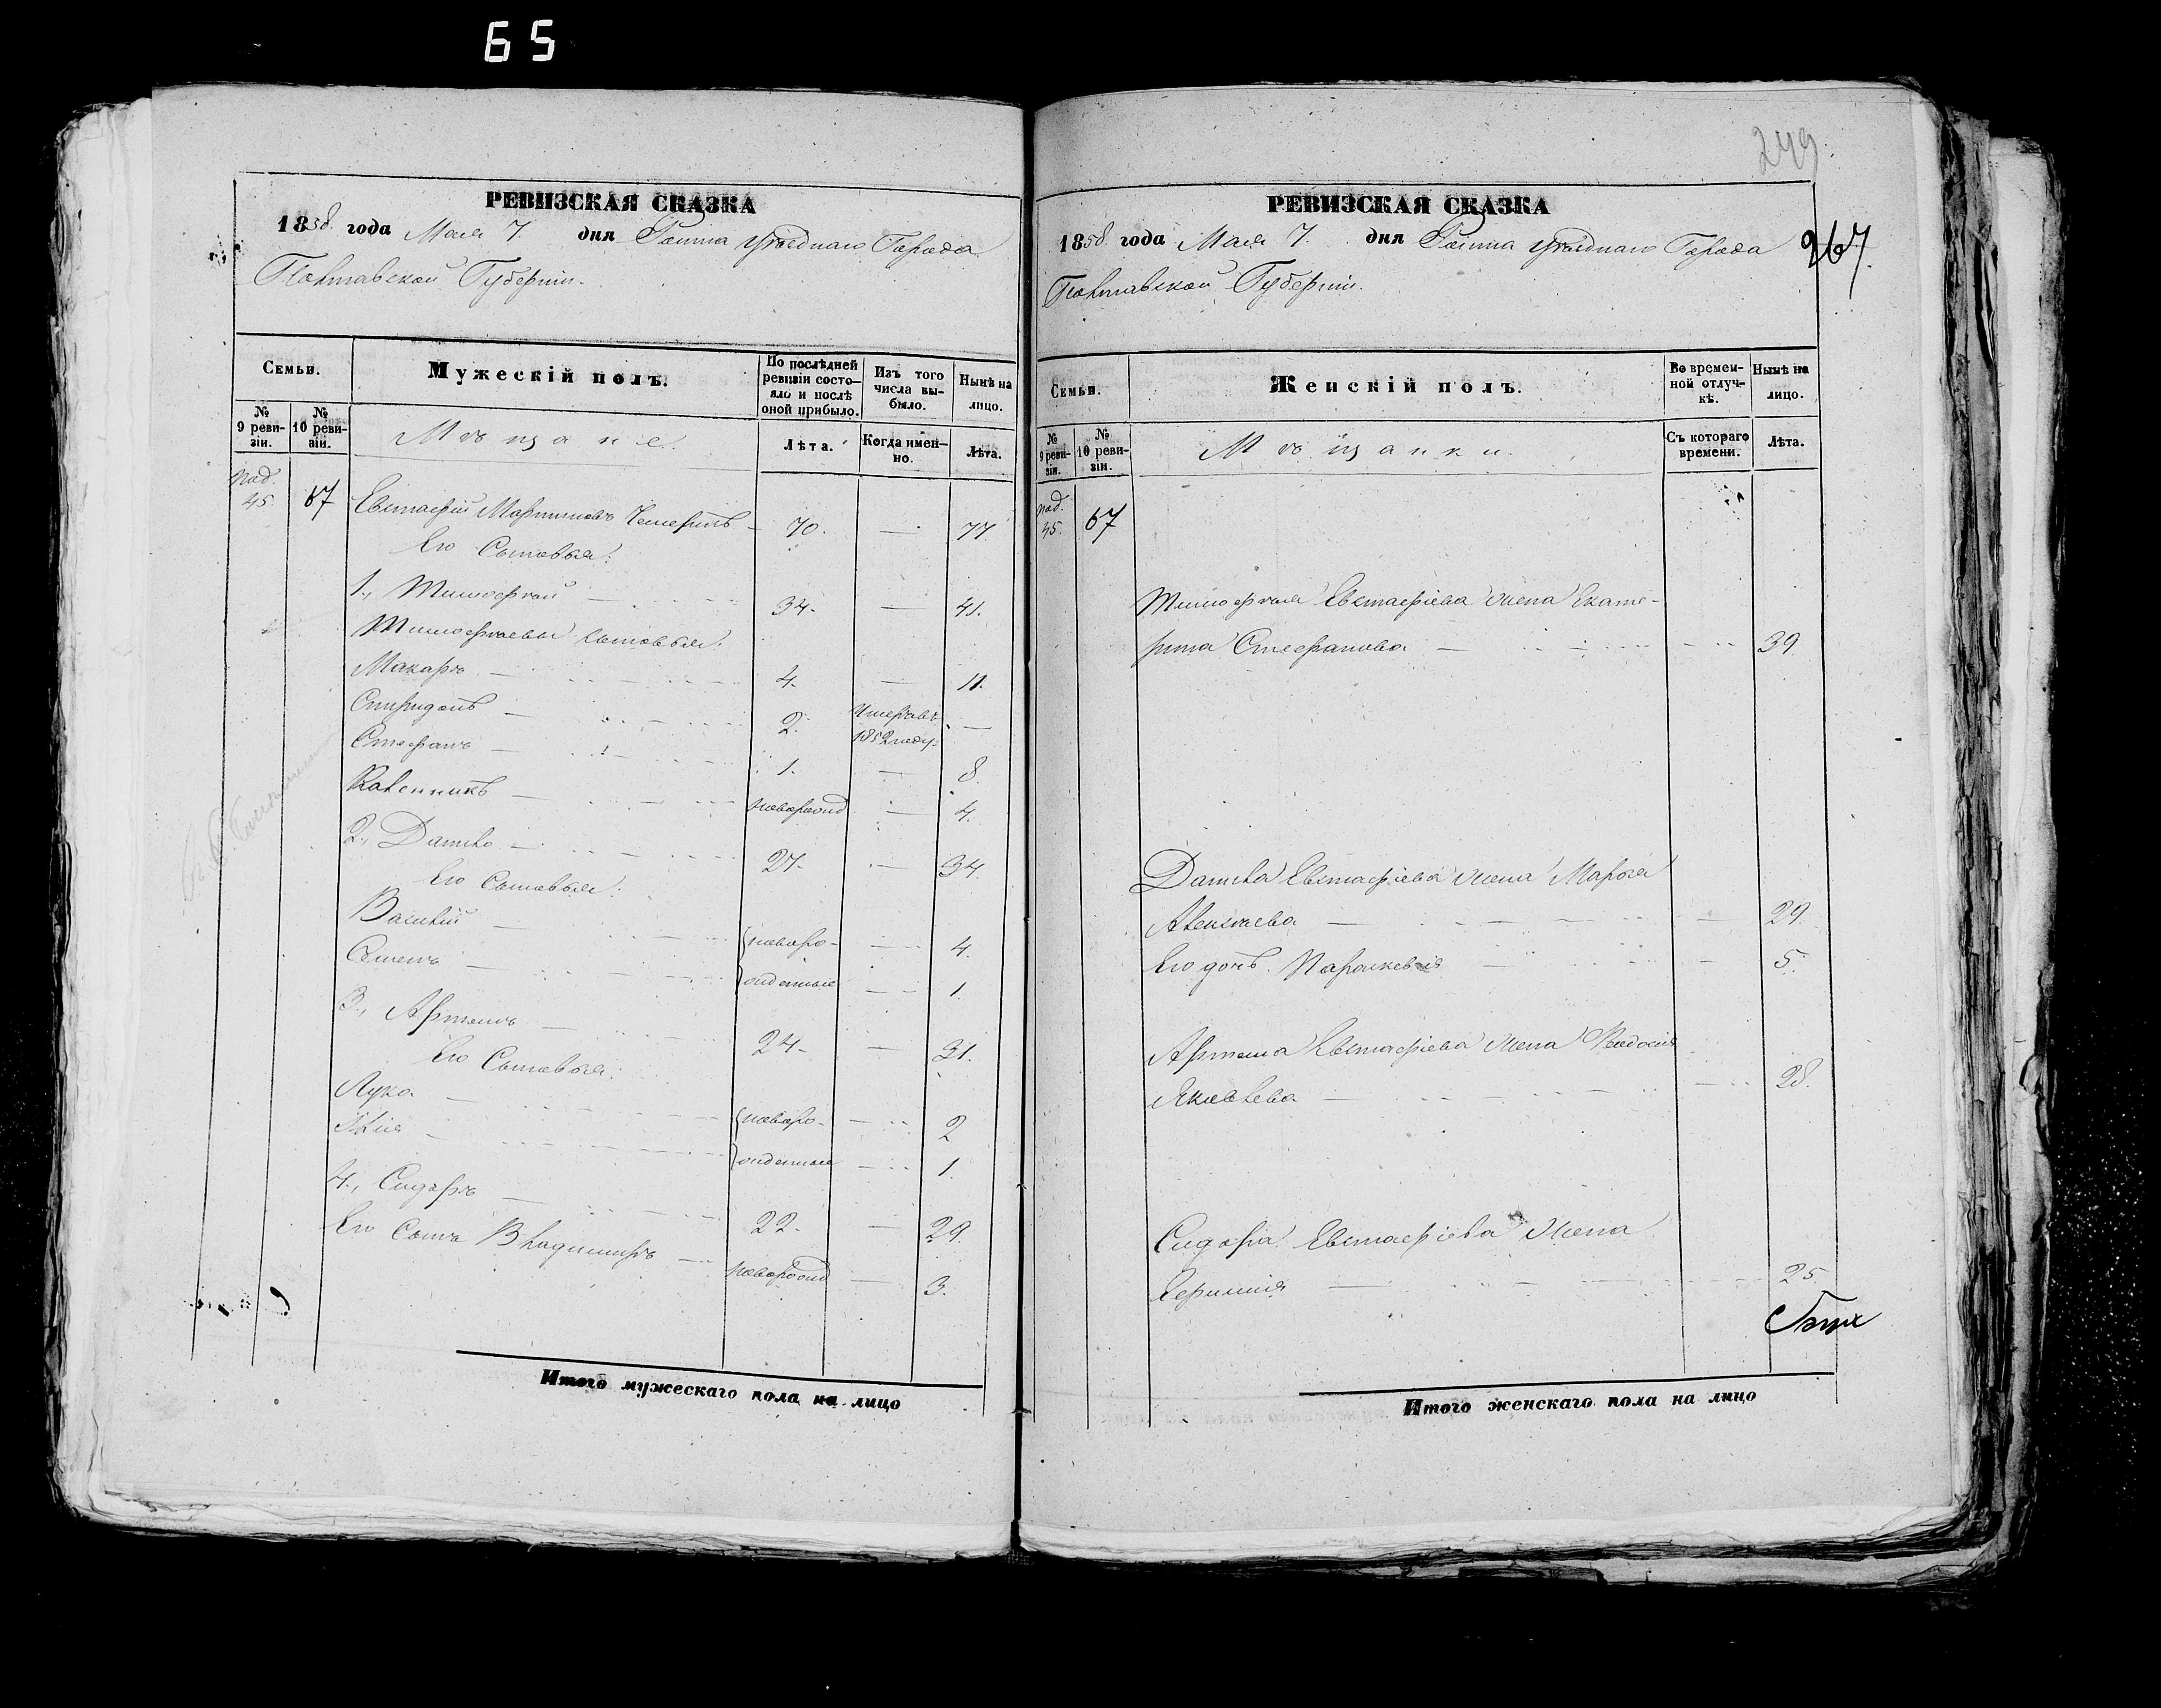 65
РЕВИЗСКАЯ СКАЗКА
1858 года Мая 7. дня Уѣзднаго Города
Полтавской Губерніи.
Семьи.
Мужескій полъ.
По послѣдней ревизіи состояло и послѣ оной прибыло.
Изъ того числа выбыло.
Нынѣ на лицо.
№ 9 ревизіи.
№ 10 ревизіи.
Мѣщане.
Лѣта.
Когда именно.
Лѣта.
под. 45. 67 Евстафій Мартиновъ — 70. — 77
Его Сыновья:
1., Тимофѣй — 34. — 41.
Тимофѣевы сыновья:
Макаръ — 4. — 11.
Спиридонъ — 2. Умеръ въ 1852 году. —
Стефанъ — 1. — 8.
Каленникъ — новорожд — 4.
2., Данило — 27. — 34.
Его Сыновья:
Василій — новоро- — 4.
Семенъ — жденные — 1.
3., Артемъ — 24. — 31.
Его Сыновья:
Лука — новоро- — 2
Илія — жденные — 1.
4., Сидоръ — 22. — 29.
Его Сынъ Владимиръ — новорожд — 3.
Итого мужескаго пола на лицо
249
267.
РЕВИЗСКАЯ СКАЗКА
1858 года Мая 7. дня Уѣзднаго Города
Полтавской Губерніи.
Семьи.
Женскій полъ.
Во временной отлучкѣ.
Нынѣ на лицо.
№ 9 ревизіи.
№ 10 ревизіи.
Мѣщанки.
Съ котораго времени.
Лѣта.
под. 45. 67
Тимофѣя Евстафіева жена Екате-
рина Стефанова — 39.
Данила Евстафіева жена Марфа
Алексѣева — 29.
Его дочь Параскевія — 5.
Артема Евстафіева жена Феодосія
Яковлева — 28.
Сидора Евстафіева жена
— 25.
Итого женскаго пола на лицо